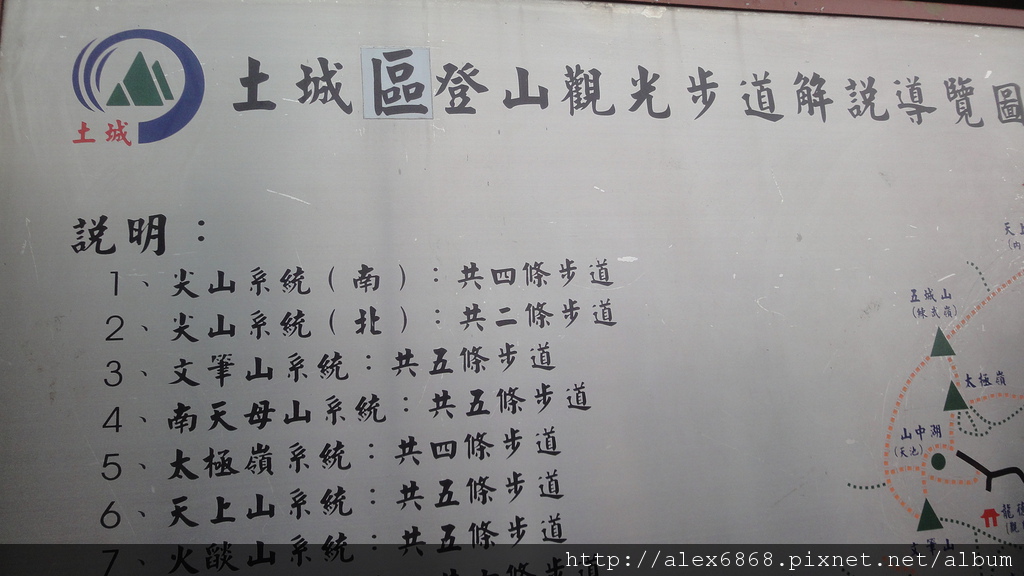 土城區登山觀光步道解說導覽圖
土城
說明：
1、尖山系統（南）：共四條步道
2、尖山系統（北）：共二條步道
3、文筆山系統：共五條步道
4、南天母山系統：共五條步道
5、太極嶺系統：共四條步道
6、天上山系統：共五條步道
7、火燄山系統：共五條步道
天上
(內
五城山
太極嶺
山中湖
(天池)
龍
文筆山
http://alex6868.pixnet.net/album